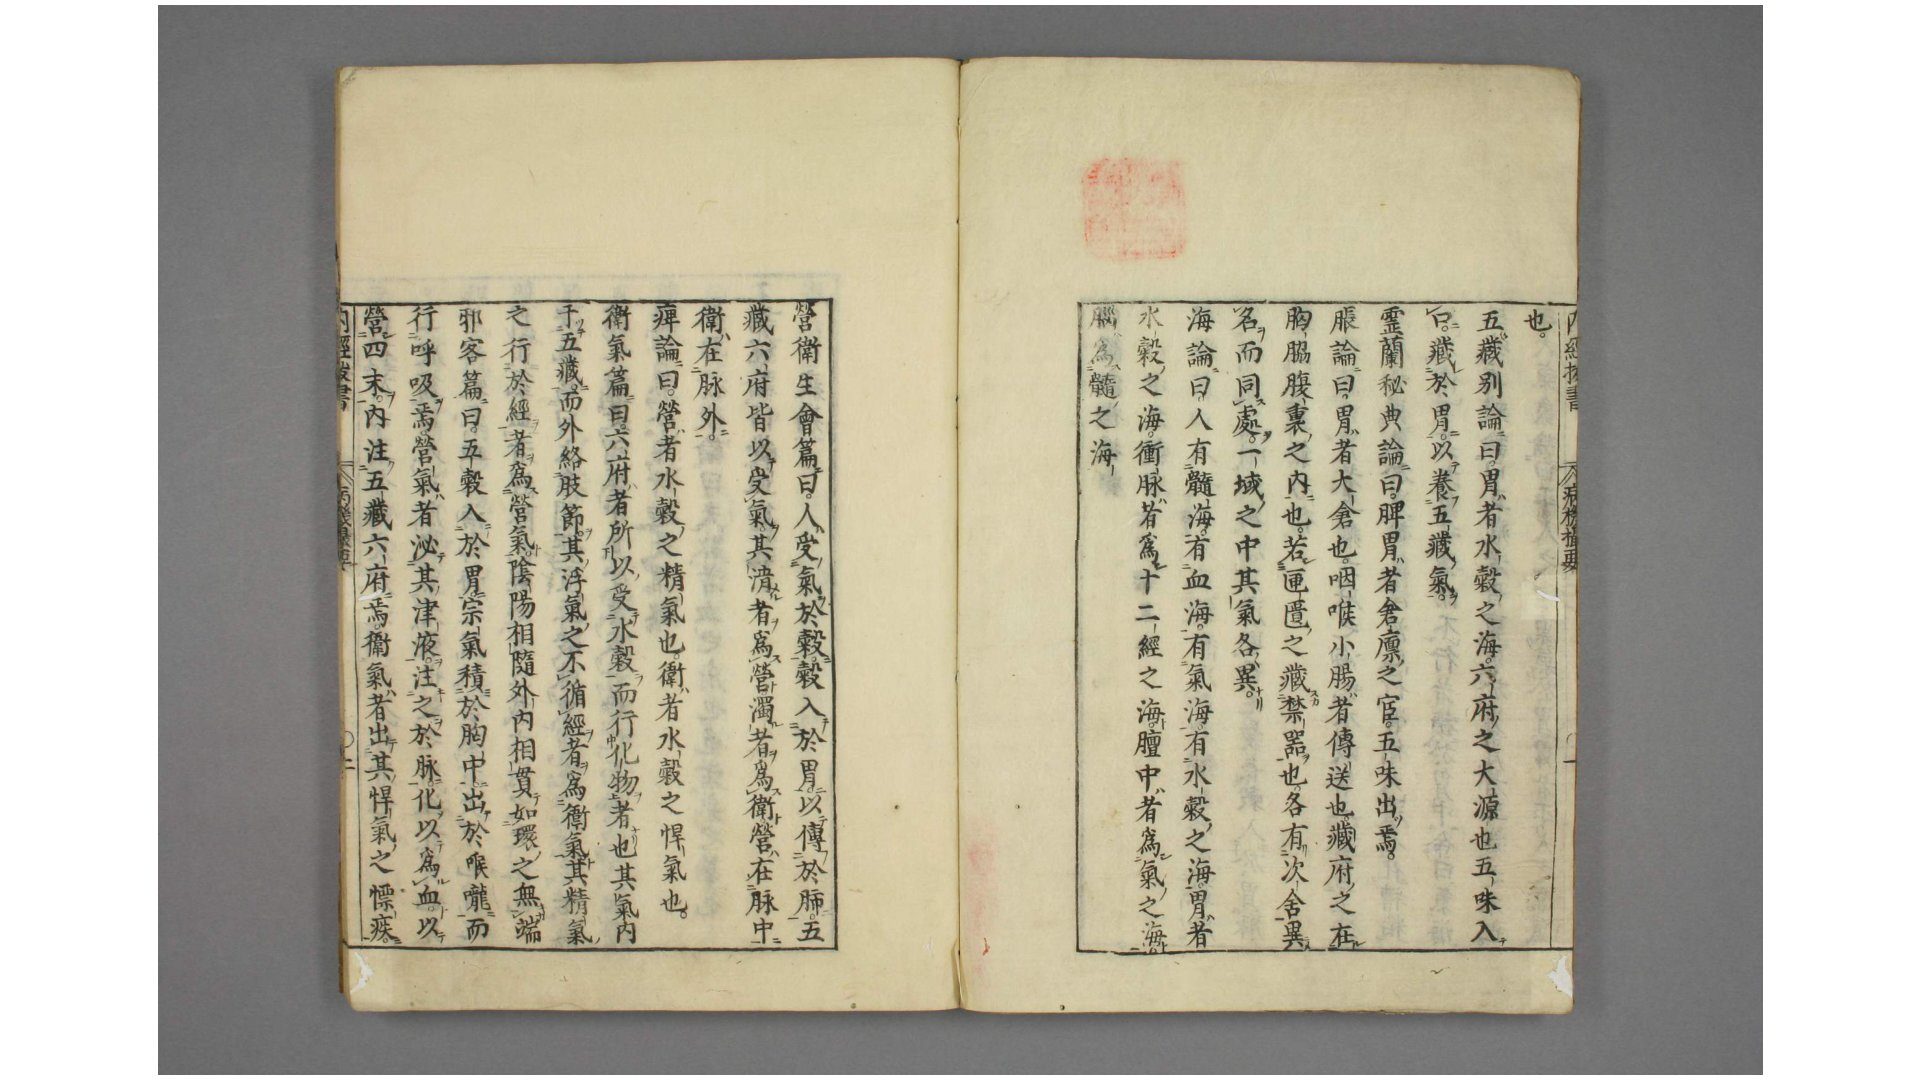 也。
五藏別論曰。胃者水穀之海。六府之大源也五味入
口。藏於胃。以養五藏氣。
靈蘭秘典論曰。脾胃者倉廩之官。五味出焉。
脹論曰。胃者大倉也。咽喉小腸者傳送也。藏府之在
胸脇腹裏之内也。若匣匱之藏禁器也。各有次舍異
名而同處。一域之中其氣各異。
海論曰人有髓海。有血海。有氣海。有水穀之海。胃者
水穀之海。衝脉者爲十二經之海。膻中者爲氣之海。
腦爲髓之海
營衛生會篇曰。人受氣於穀。穀入於胃。以傳於肺。五
藏六府皆以受氣。其清者爲營濁者爲衛營在脉中
衛在脉外。
痺論曰。營者水穀之精氣也。衛者水穀之悍氣也。
衛氣篇曰。六府者所以受水穀而行化物者也其氣内
于五藏。而外絡肢節。其浮氣之不循經者爲衛氣其精氣
之行於經者爲營氣。陰陽相隨外内相貫如環之無端
邪客篇曰。五穀入於胃宗氣積於胸中。出於喉嚨而
行呼吸焉。營氣者泌其津液。注之於脉。化以爲血。以
營四末。内注五藏六府焉。衛氣者出其悍氣之慓疾。